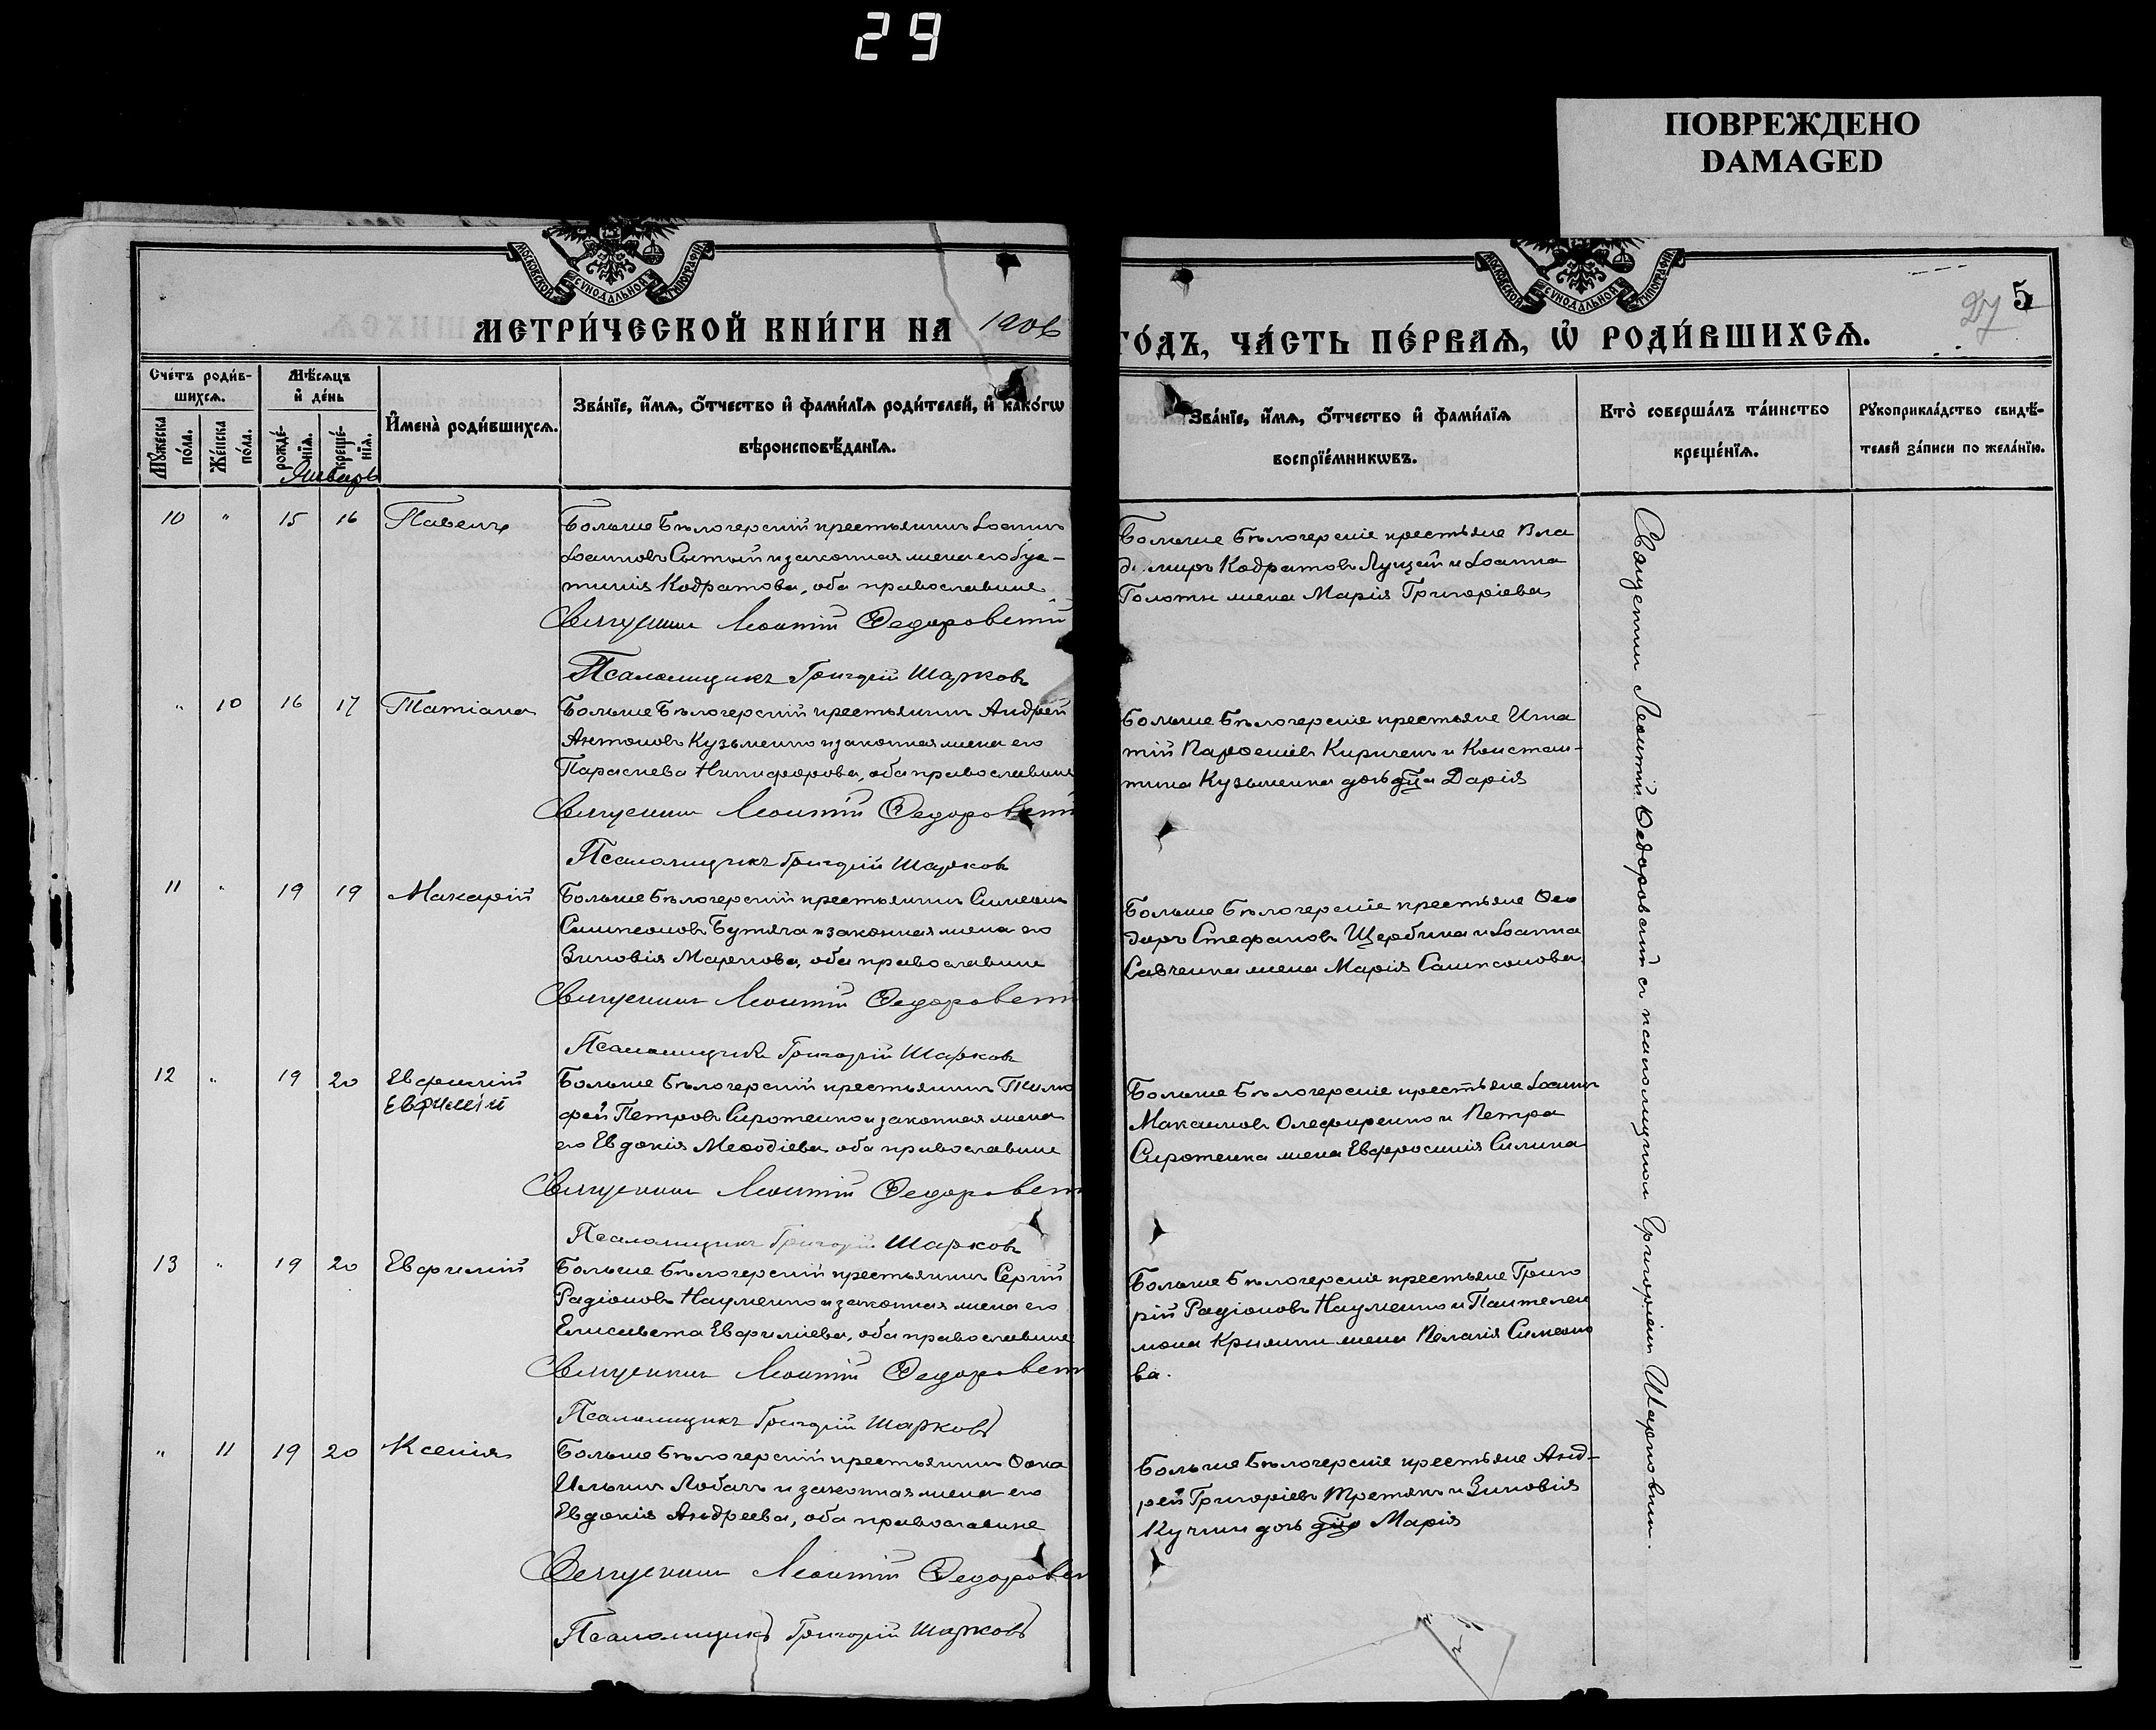 29
ПОВРЕЖДЕНО
DAMAGED
МОСКОВСКОЙ СѴНОДАЛЬНОЙ ТИПОГРАФІИ
МОСКОВСКОЙ СѴНОДАЛЬНОЙ ТИПОГРАФІИ
27 5
МЕТРИ́ЧЕСКОЙ КНИ́ГИ НА 1906 ГО́ДЪ, ЧА́СТЬ ПЕ́РВАѦ, Ѡ҆ РОДИ́ВШИХСѦ.
Сче́тъ роди́в-
шихсѧ.
Мѣ́сѧцъ
и҆ де́нь
Мꙋ́жеска по́ла.
Же́нска по́ла.
рожде́-
нїѧ.
креще́-
нїѧ.
Январь
И҆мена̀ роди́вшихсѧ.
Зва́нїе, и҆́мѧ, ѻ҆́тчество и҆ фами́лїѧ роди́телей, и҆ како́гѡ
вѣроисповѣ́данїѧ.
Зва́нїе, и҆́мѧ, ѻ҆́тчество и҆ фами́лїѧ
воспрїе́мникѡвъ.
Кто̀ соверша́лъ та́инство
креще́нїѧ.
Рꙋкоприкла́дство свидѣ́-
телей за́писи по жела́нїю.
10 " 15 16 Павелъ
Больше Бѣлозерскій крестьянинъ Іоаннъ
Іоанновъ Сытый и законная жена его Іус-
тинія Кодратова, оба православные
Священникъ Леонтій Ѳедоровскій
Псаломщикъ Григорій Шарковъ
Больше Бѣлозерскіе крестьяне Вла
димиръ Кодратовъ Луцкій и Іоанна
Голоты жена Марія Григоріева
" 10 16 17 Татіана
Больше Бѣлозерскій крестьянинъ Андрей
Антоновъ Кузьменко и законная жена его
Параскева Никифорова, оба православные
Священникъ Леонтій Ѳедоровскій
Псаломщикъ Григорій Шарковъ
Больше Бѣлозерскіе крестьяне Игна
тій Парѳеніевъ Киричекъ и Констан-
тина Кузьменка дочь дѣвица Дарія
11 " 19 19 Макарій
Больше Бѣлозерскій крестьянинъ Симеонъ
Симеоновъ Бутяга и законная жена его
Зиновія Маркова, оба православные
Священникъ Леонтій Ѳедоровскій
Псаломщикъ Григорій Шарковъ
Больше Бѣлозерскіе крестьяне Ѳео
доръ Стефановъ Щербина и Іоанна
Савченка жена Марія Самсонова
12 " 19 20 Евфимій
Евфимій
Больше Бѣлозерскій крестьянинъ Тимо
фей Петровъ Сиротенко и законная жена
его Евдокія Меѳодіева оба православные
Священникъ Леонтій Ѳедоровскій
Псаломщикъ Григорій Шарковъ
Больше Бѣлозерскіе крестьяне Іоаннъ
Максимовъ Олефиренко и Петра
Сиротенка жена Евфросинія Силина
13 " 19 20 Евфимій
Больше Бѣлозерскій крестьянинъ Сергій
Радіоновъ Науменко и законная жена его
Елисавета Евфиміева, оба православные
Священникъ Леонтій Ѳедоровскій
Псаломщикъ Григорій Шарковъ
Больше Бѣлозерскіе крестьяне Григо
рій Радіоновъ Науменко и Пантелеи
мона жена Пелагія Симеоно
ва.
" 11 19 20 Ксенія
Больше Бѣлозерскій крестьянинъ Ѳока
Ильинъ Лобачъ и законная жена его
Евдокія Андреева, оба православные
Священникъ Леонтій Ѳедоровскій
Псаломщикъ Григорій Шарковъ
Больше Бѣлозерскіе крестьяне Анд-
рей Григоріевъ Третякъ и Зиновія
дочь дѣвица Марія
Священникъ Леонтій Ѳедоровскій съ псаломщикомъ Григоріемъ Шарковымъ.